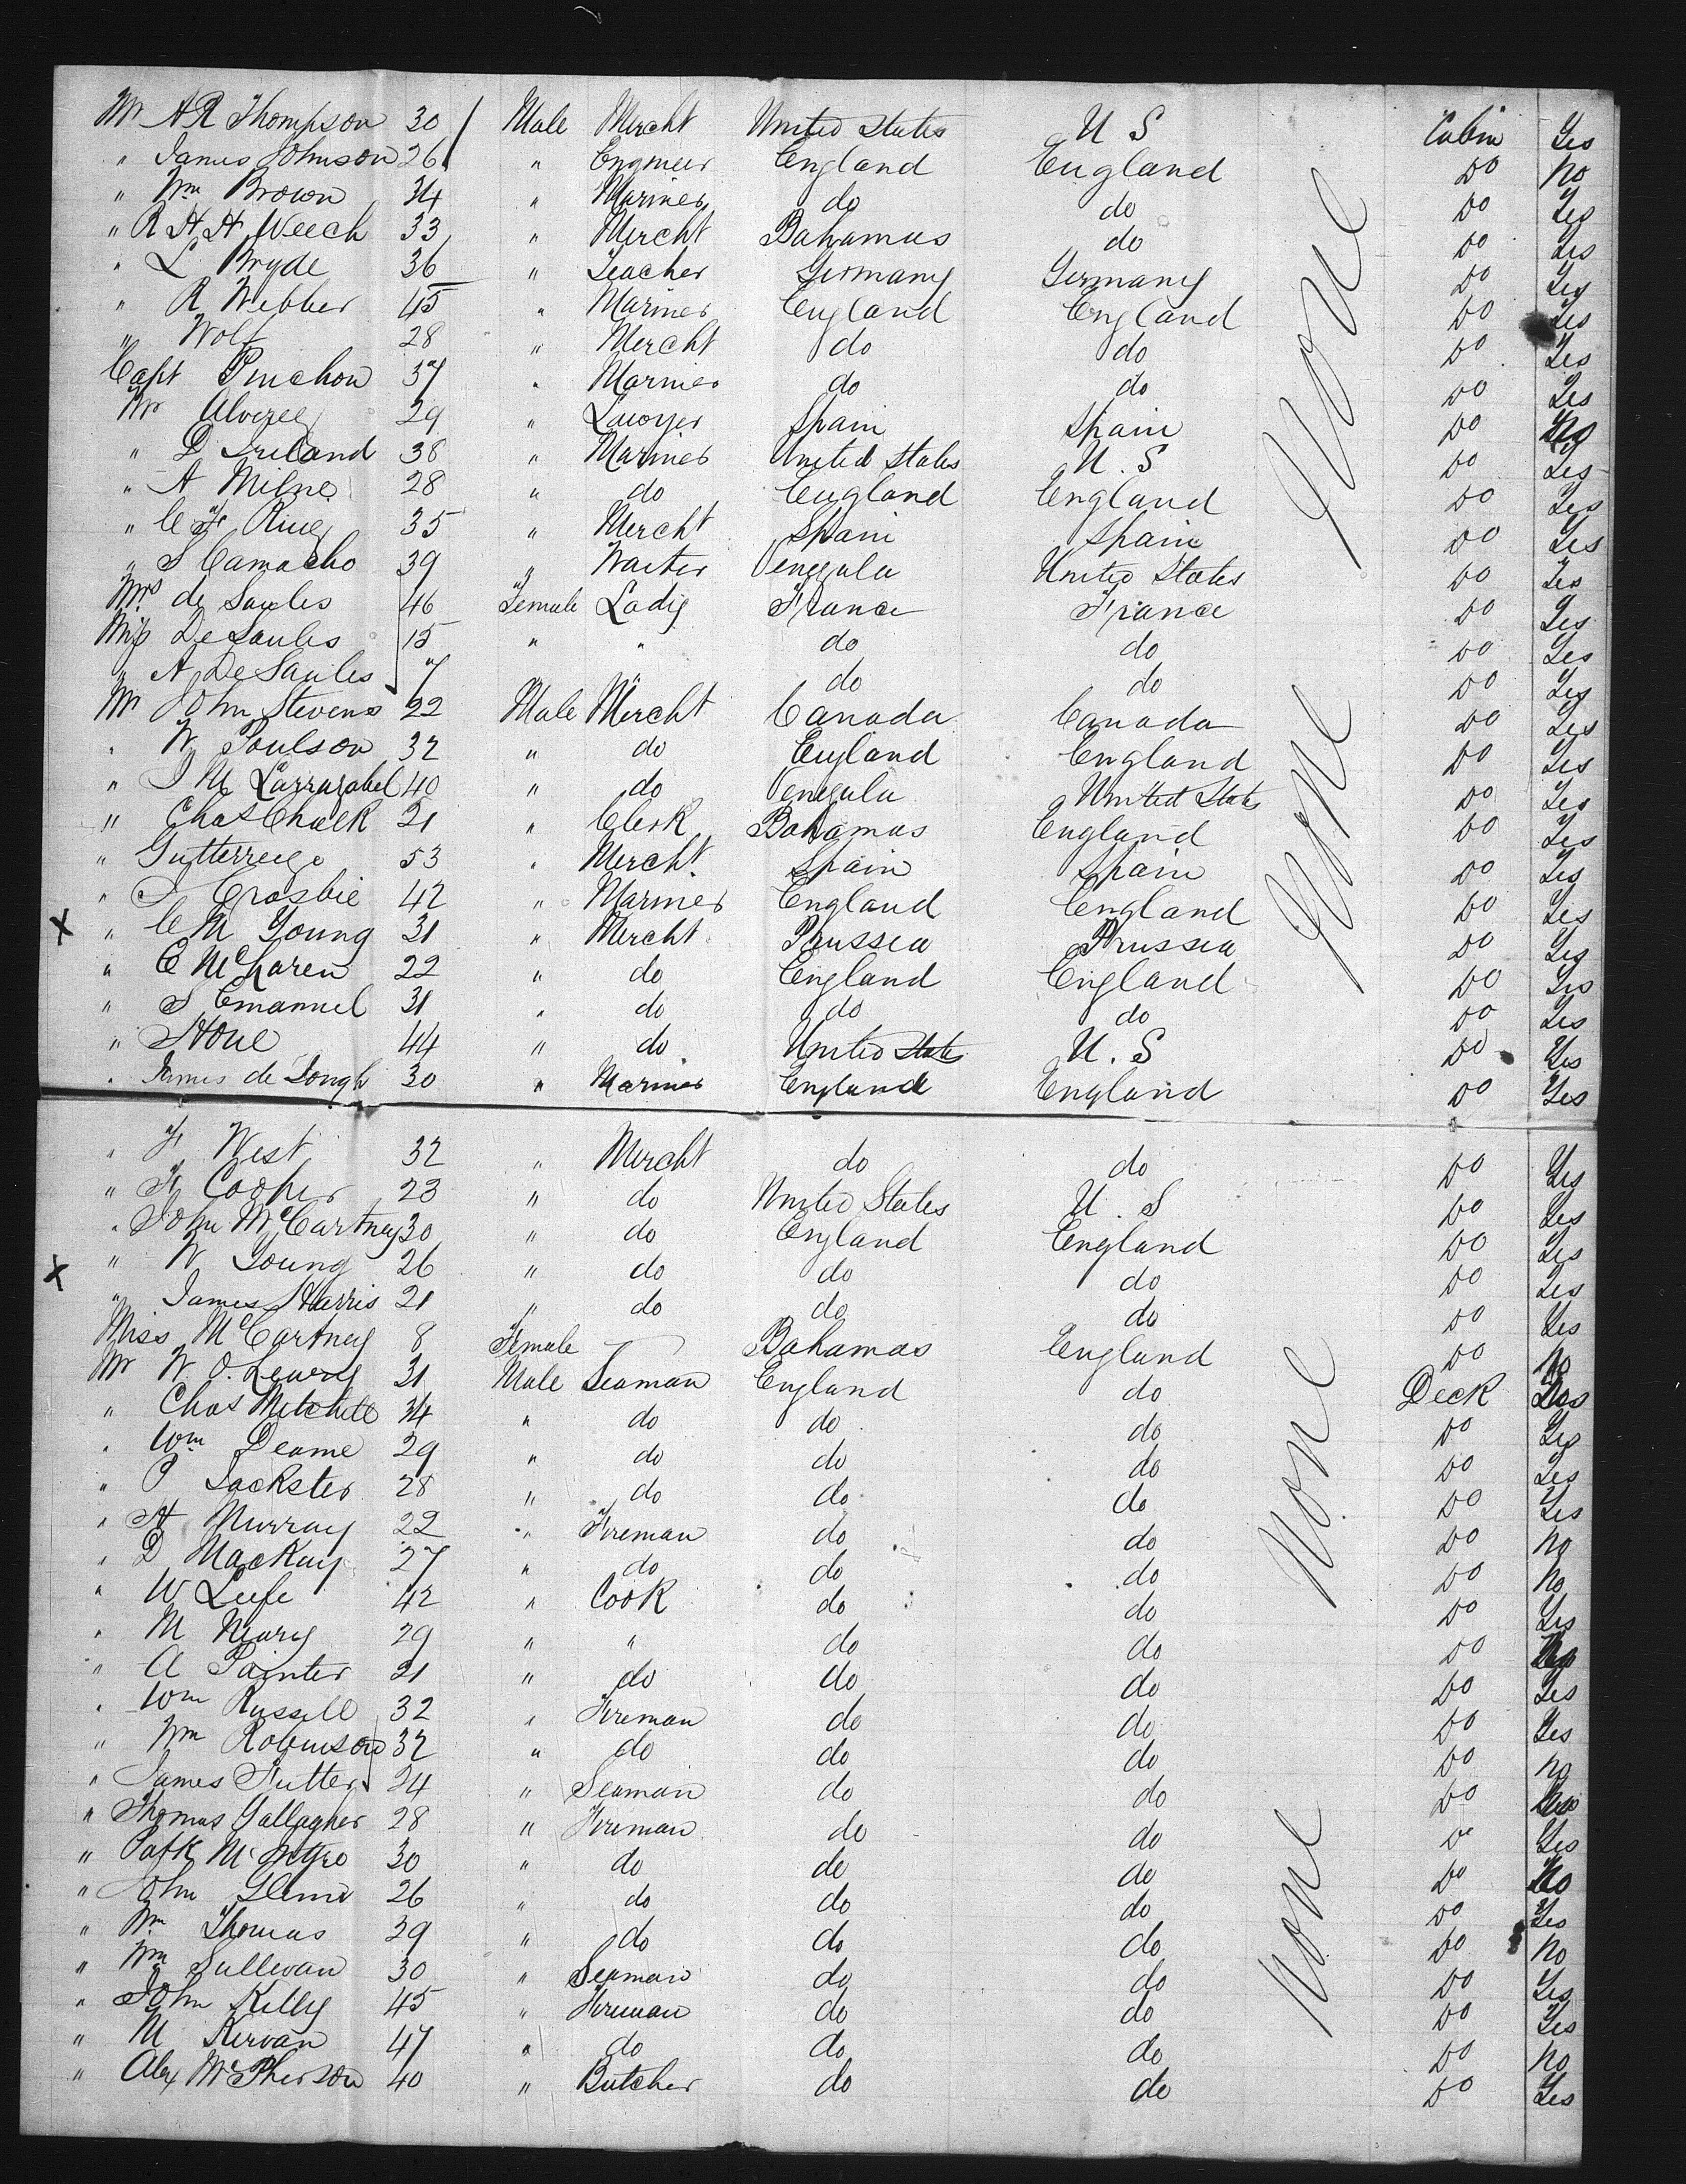 Mr A R Thompson 30 Male Mercht United States U S Cabin Yes
" James Johnson 26 " Engineer England England Do No
" Wm Brown 34 " Mariner do do Do Yes
" R H H Weech 33 " Mercht Bahamas do Do Yes
" L Bryde 36 " Teacher Germany Germany Do Yes
" R Webber 45 " Mariner England England Do Yes
" Wolf 28 " Mercht do do Do Yes
Capt Pinchon 37 " Mariner do do Do Yes
Mr 29 " Lawyer Spain Spain Do
" D Ireland 38 " Mariner United States U. S Do Yes
" A Milne 28 " do England England Do Yes
" 35 " Mercht Spain Spain Do Yes
" S Camacho 39 " Waiter Venezula United States Do Yes
Mrs de Saules 46 Female Lady France France Do Yes
Miss De Saules 15 " " do do Do Yes
" A De Saules 7 " " do do Do Yes
Mr John Stevens 22 Male Mercht Canada Canada Do Yes
" W Poulson 32 " do England England Do Yes
" J M Larrazabel 40 " do Venezula United State Do Yes
" Chas Chalk 21 " Clerk Bahamas England Do Yes
" 53 " Mercht. Spain Spain Do Yes
" Crosbie 42 " Mariner England England Do Yes
X " C M Young 31 " Mercht Prussia Prussia Do Yes
" E McLaren 22 " do England England Do Yes
" S Emanuel 31 " do do do Do Yes
" Stone 44 " do United State U. S Do Yes
" James de Longh 30 " Mariner England England Do Yes
None
None
" F West 32 " Mercht do do Do Yes
" F Cooper 23 " do United States U. S Do Yes
" John McCartney 30 " do England England Do Yes
X " W Young 26 " do do do Do Yes
" James Harris 21 " do do do Do Yes
Miss McCartney 8 Female Bahamas England Do No
Mr W. O. Leary 31 Male Seaman England do Deck Yes
" Chas Mitchell 34 " do do do Do Yes
" Wm Deame 29 " do do do Do Yes
" P Lockster 28 " do do do Do Yes
" A Murray 22 " Fireman do do Do No
" D MacKay 27 " do do do Do No
" W Leefe 42 " Cook do do Do Yes
" M Neary 29 " " do do Do
" A Painter 21 " do do do Do Yes
" Wm Russell 32 " Fireman do do Do Yes
" Wm Robinson 32 " do do do Do No
" James Futter 24 " Seaman do do Do
" Thomas Gallagher 28 " Fireman do do Do Yes
" Patk McIntyre 30 " do do do Do No
" John Glenn 26 " do do do Do Yes
" Wm Thomas 29 " do do do Do No
" Wm Sullivan 30 " Seaman do do Do Yes
" John Kelly 45 " Fireman do do Do Yes
" M Kervan 47 " do do do Do No
" Alex McPherson 40 " Butcher do do Do Yes
None
None